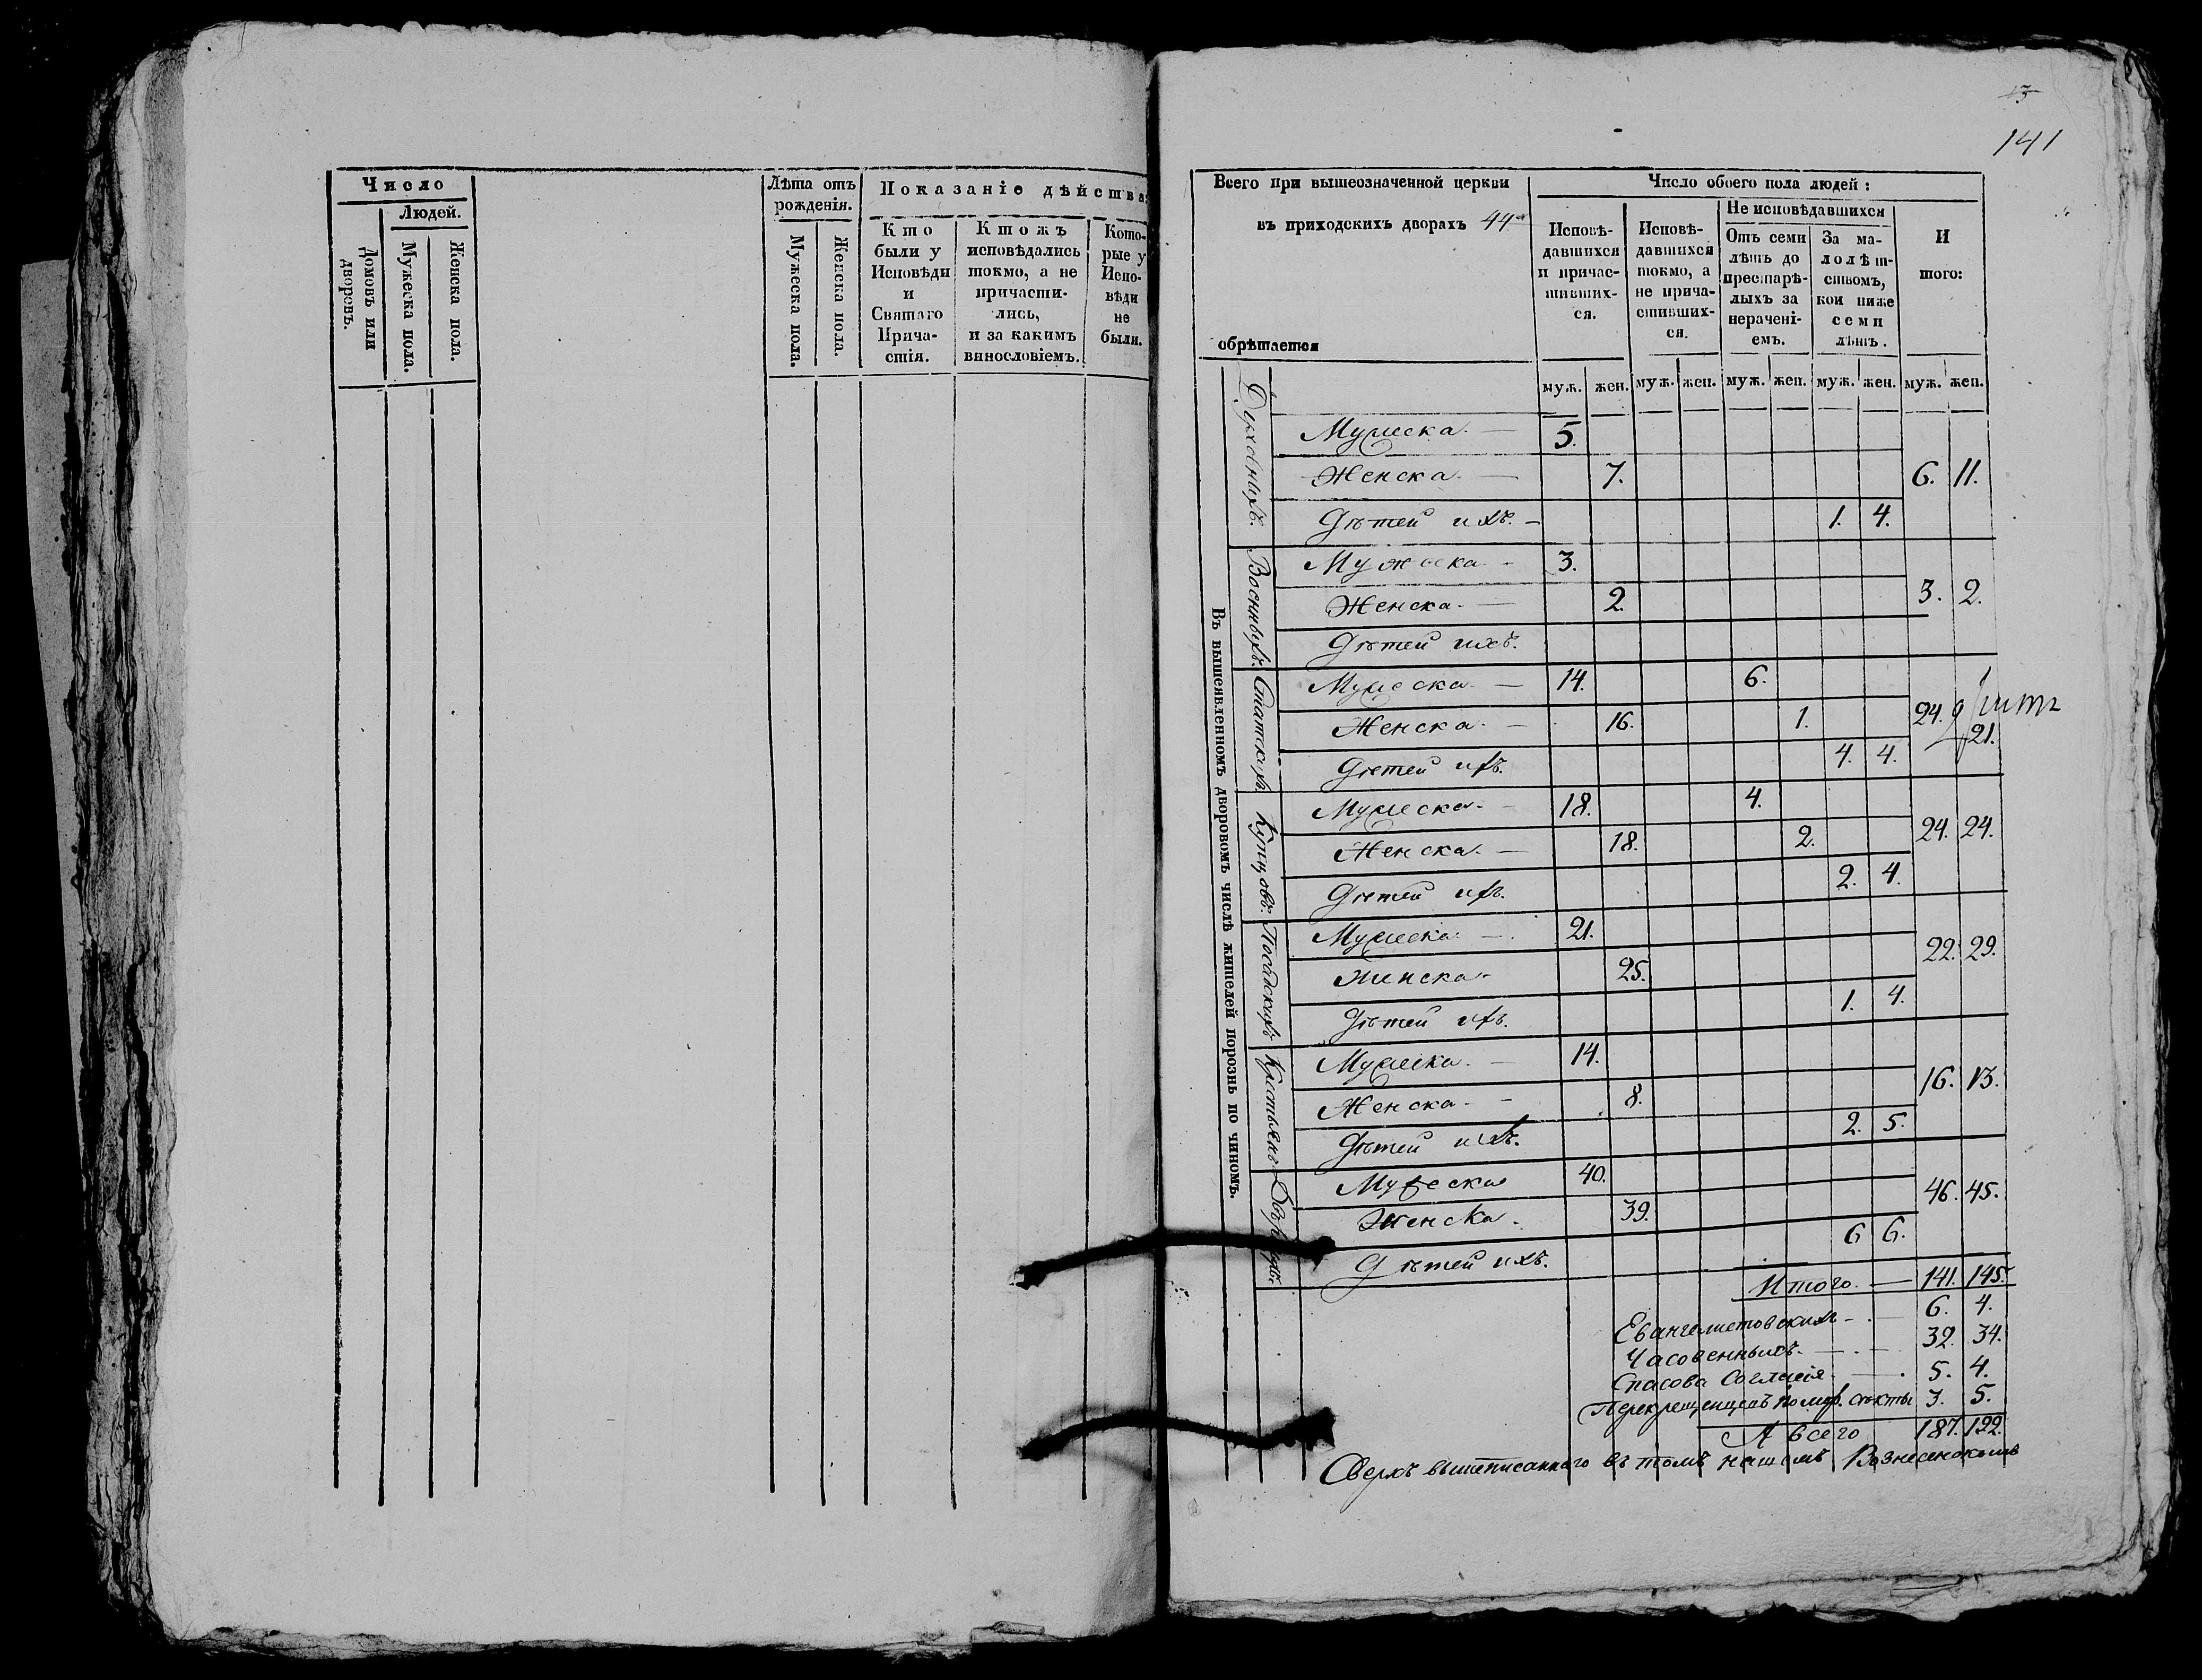 Число
Людей.
Домовъ или дворовъ.
Мужеска пола.
Женска пола.
Лѣта отъ рожденія.
Мужеска пола.
Женска пола.
Показаніе дѣйства
Кто
были у
Исповѣди
и
Святаго
Прича-
стія.
Ктожъ
исповѣдались
токмо, а не
причасти-
лись,
и за какимъ
винословіемъ.
Кото-
рые у
Испо-
вѣди
не
были.
13
141
Всего при вышеозначенной церкви
въ приходскихъ дворахъ 44
обрѣтается
Число обоего пола людей:
Исповѣ-
давшихся
и причас-
тивших-
ся.
Исповѣ-
давшихся
токмо, а
не прича-
стивших-
ся.
Не исповѣдавшихся
Отъ семи
лѣтъ до
престарѣ-
лыхъ за
нерачені-
емъ.
За ма-
лолѣт-
ствомъ,
кои ниже
семи
лѣтъ.
И
того:
муж. жен. муж. жен. муж. жен. муж. жен. муж. жен.
Въ вышеявленномъ дворовомъ числѣ жителей порознь по чиномъ.
Духовныхъ.
Мужеска. 5.
Женска. 7. 6. 11.
Дѣтей ихъ. 1. 4.
Военныхъ.
Мужеска. 3.
Женска. 2. 3. 2.
Дѣтей ихъ.
Статскихъ.
Мужеска 14. 6.
Женска. 16. 1. 24. 21.
Дѣтей ихъ. 4. 4.
Купцовъ.
Мужеска. 18. 4.
Женска. 18. 2. 24. 24.
Дѣтей ихъ. 2. 4.
Посадскихъ
Мужеска. 21.
Женска. 25. 22. 29.
Дѣтей ихъ. 1. 4.
Крестьянъ
Мужеска. 14.
Женска. 8. 16. 13.
Дѣтей ихъ. 2. 5.
Мужеска 40.
Женска. 39. 46. 45.
Дѣтей ихъ. 6 6.
Итого. 141. 145.
Евангелистовскихъ 6. 4.
Часовенныхъ. 32. 34.
Спасова Согласія 5. 4.
Перекрещенцевъ помор. секты 3. 5.
А всего 187. 192.
Сверхъ вышеписаннаго въ томъ нашемъ Вознесенскомъ